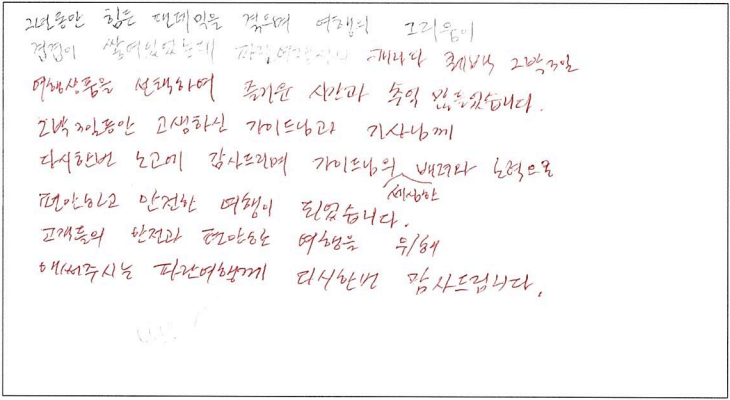 2년동안 힘든 팬데믹을 겪으며 여행의 그리움이
겹겹이 쌓여있었는데 파랑여행에서 캐나다 퀘백 2박3일
여행상품을 선택하여 즐거운 시간과 추억 만들었습니다.
2박3일동안 고생하신 가이드님과 기사님께
다시한번 노고에 감사드리며 가이드님의 배려와 노력으로
세심한
편안하고 안전한 여행이 되었습니다.
고객들의 안전과 편안한 여행을 위해
애써주시는 파란여행께 다시한번 감사드립니다.